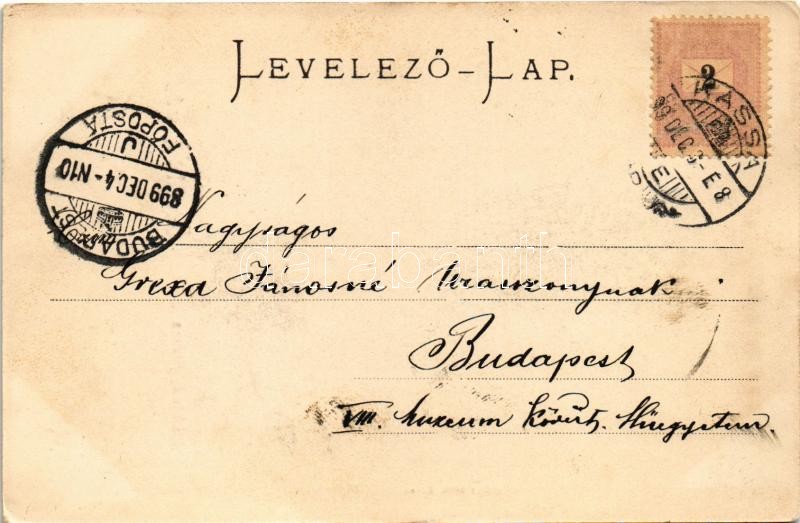 LEVELEZŐ-LAP.
2
KASSA
99 DEC. 3 - E 8
BUDAPEST
899 DEC 4 - N10
FŐPOSTA
J
Nagyságos
Grexa Jánosné Uraszonynak
Budapest
VIII. Muzeum körút. Műegyetem.
darabanth